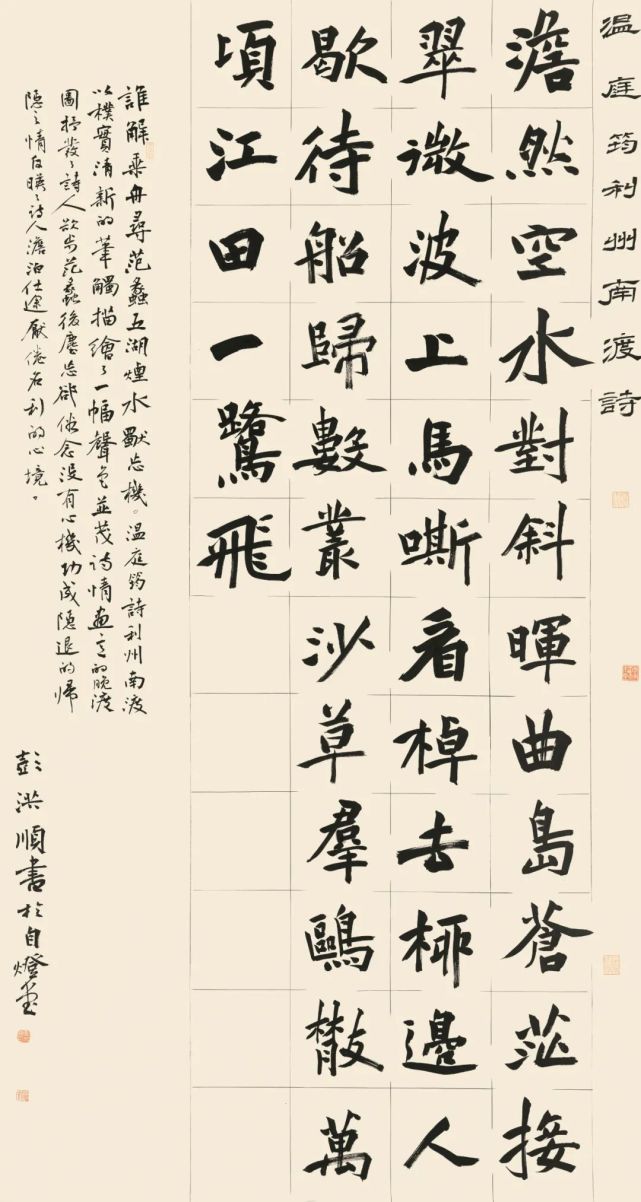 温庭筠利州南渡詩
澹然空水對斜暉曲島蒼茫接
翠微波上馬嘶看棹去柳邊人
歇待船歸數叢沙草羣鷗散萬
頃江田一鷺飛
誰解乘舟尋范蠡五湖煙水獸忘機。温庭筠詩利州南渡
以樸實清新的筆觸描繪了一幅聲色並茂诗情画意的晚渡
圖抒發了詩人欲步范蠡後塵忘卻俗念没有心機功成隐退的帰
隐之情反映了诗人澹泊仕途厭倦名利的心境。
彭洪順書於自燈堂